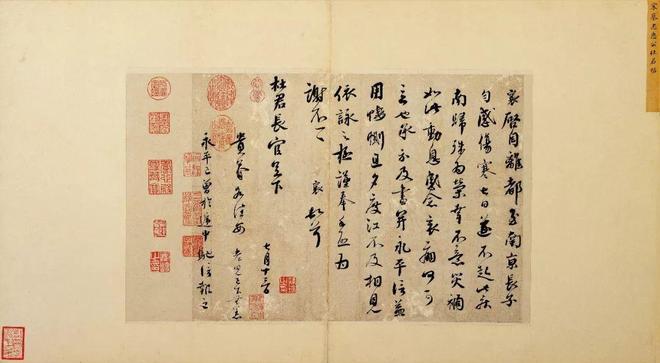 宋蔡忠惠公杜君帖
襄啓自離都至南京長子
勻感傷寒七日遂不起此疾
南歸殊為榮幸不意災禍
如此動息感念哀痛何可
言也承示及書并永平信益
用悽惻旦夕度江不及相見
依詠之極謹奉手啓為
謝不一一 襄頓首
杜君長官足下
七月十三日
貴眷各佳安 老兒已下無恙
永平已曾於遞中馳信報之